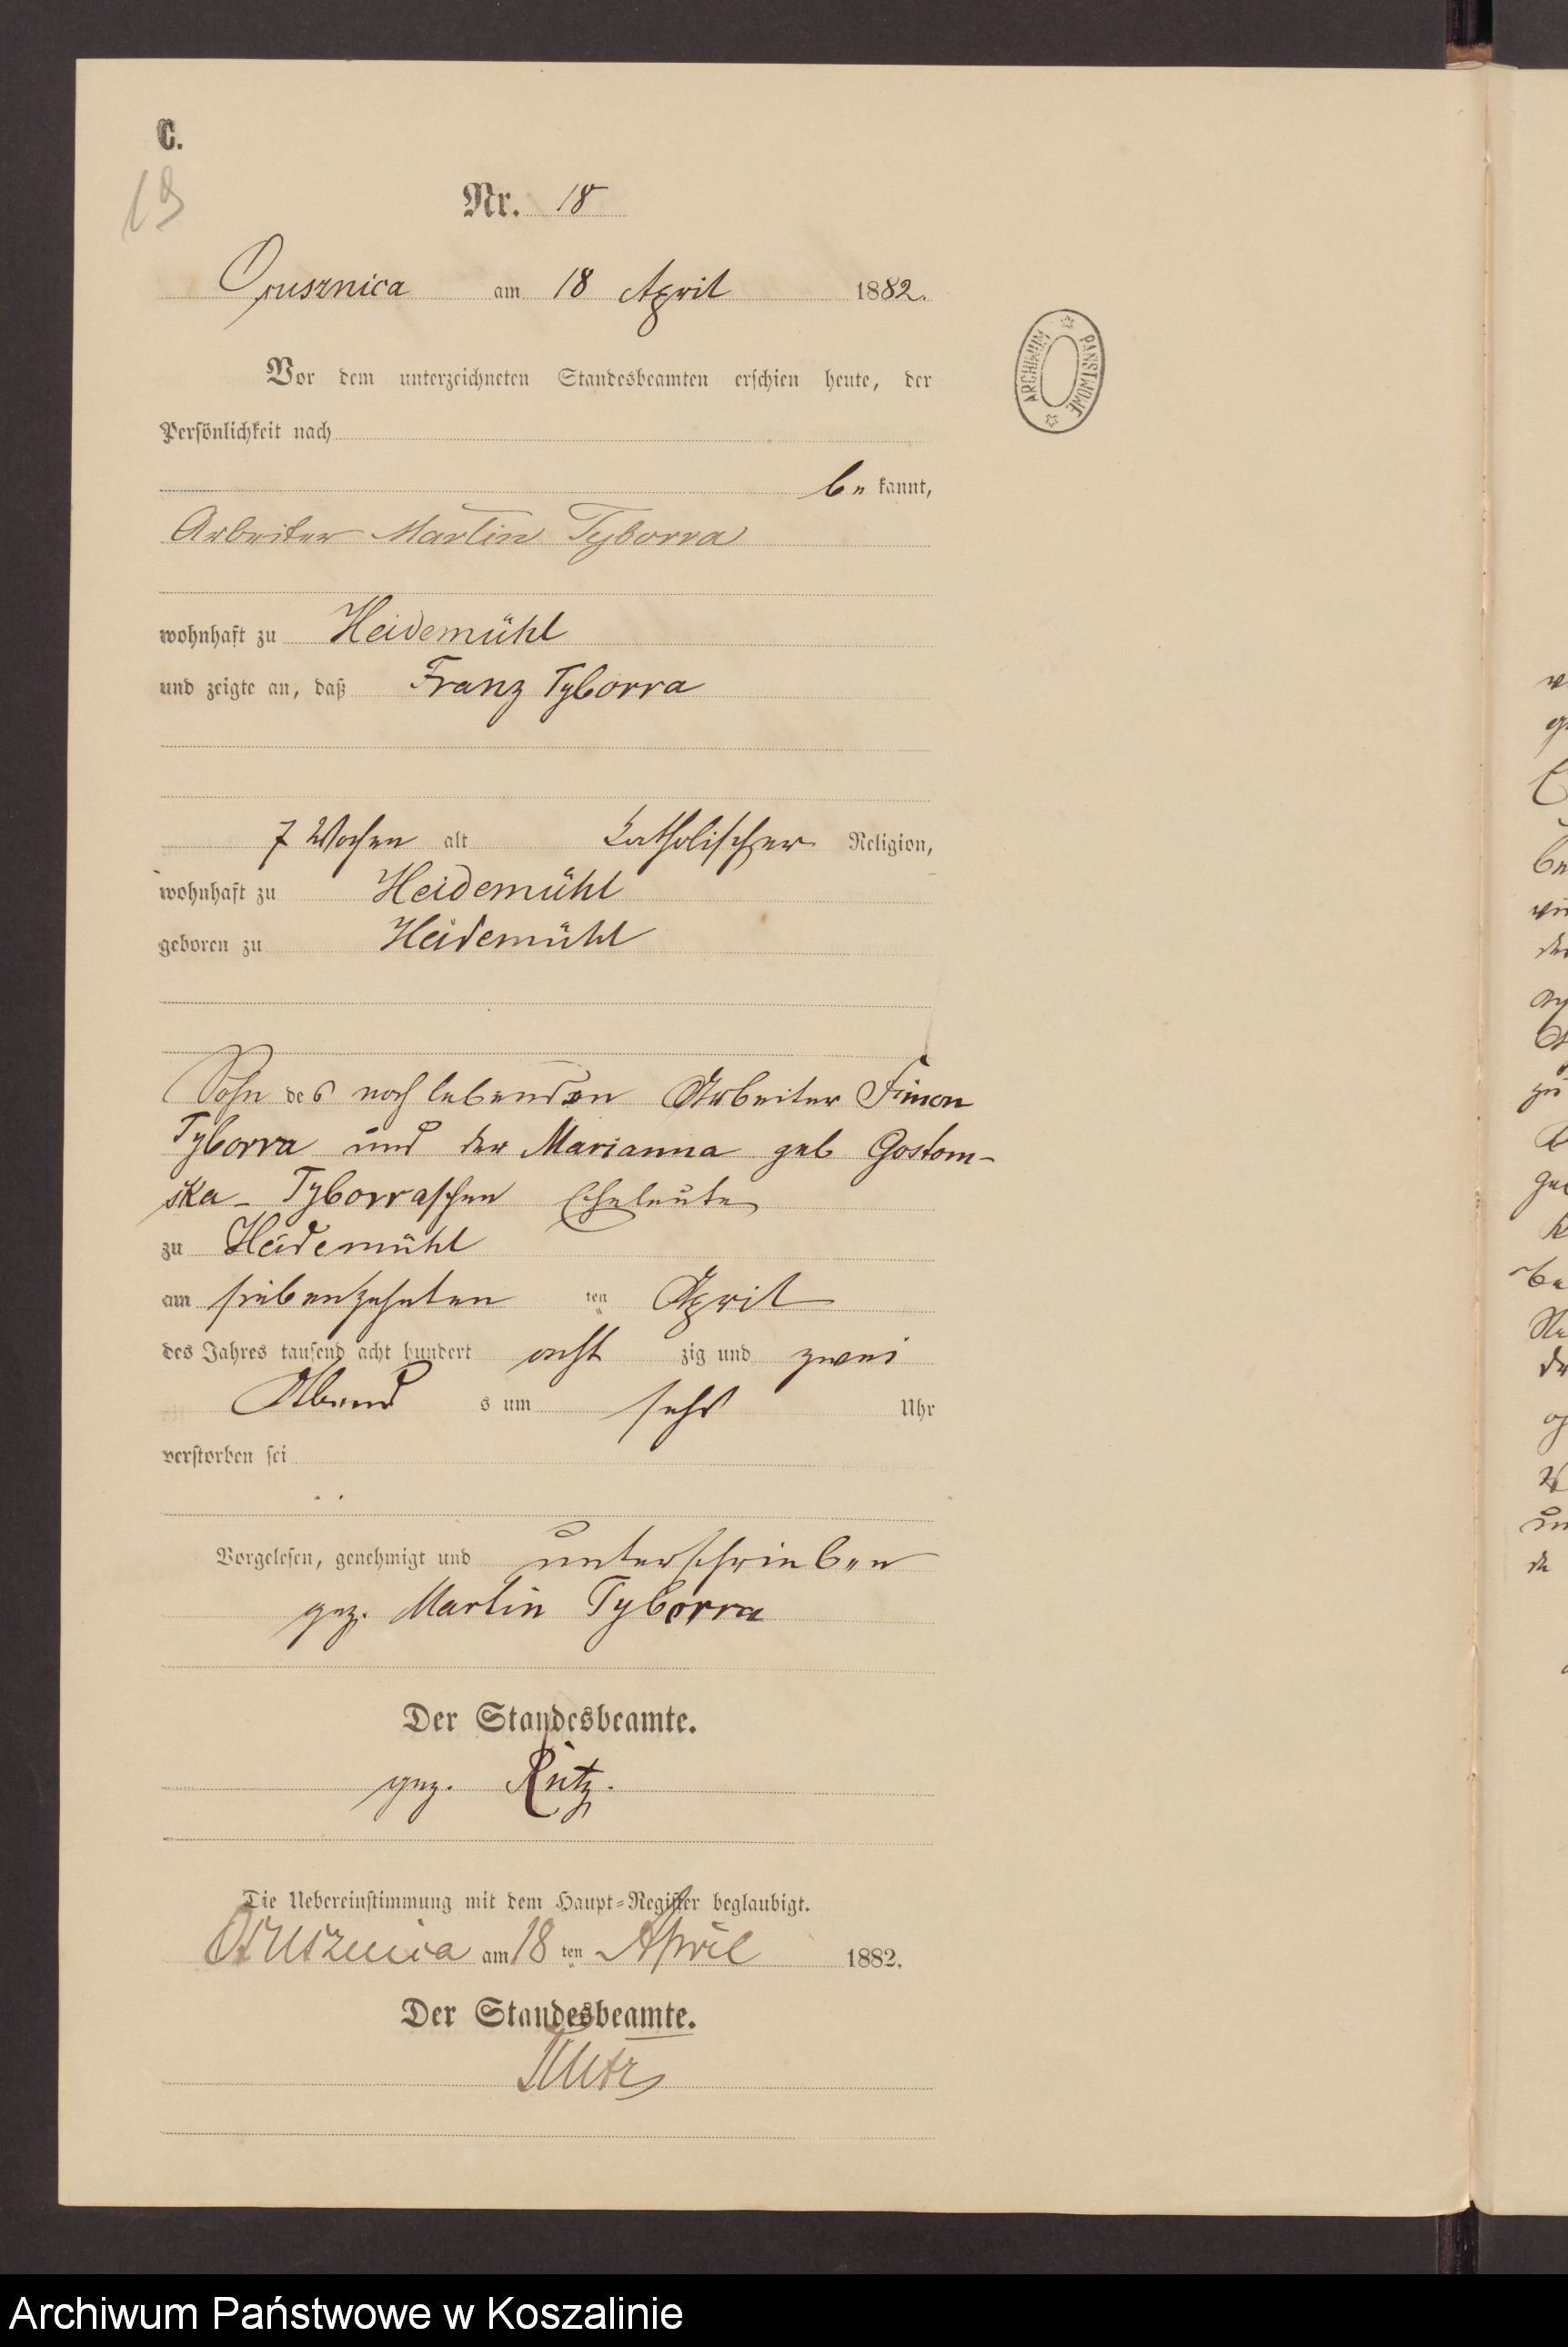 C.
19
Nr. 18
Ossusznica am 18 April 1882.
Vor dem unterzeichneten Standesbeamten erschien heute, der
Persönlichkeit nach
be kannt,
Arbeiter Martin Tyborra
wohnhaft zu Heidemühl
und zeigte an, daß Franz Tyborra
7 Wochen alt katholischer Religion,
wohnhaft zu Heidemühl
geboren zu Heidemühl
Sohn des noch lebenden Arbeiter Simon
Tyborra und der Marianna geb Gostom-
ska - Tyborraschen Eheleute
zu Heidemühl
am siebenzehnten ten April
des Jahres tausend acht hundert acht zig und zwei
Abend s um sechs Uhr
verstorben sei
Vorgelesen, genehmigt und unterschrieben
gez. Martin Tyborra
Der Standesbeamte.
gez. Rütz.
Die Uebereinstimmung mit dem Haupt-Register beglaubigt.
am 18 ten April 1882.
Der Standesbeamte.
Rütz
ARCHIWUM PAŃSTWOWE
Archiwum Państwowe w Koszalinie